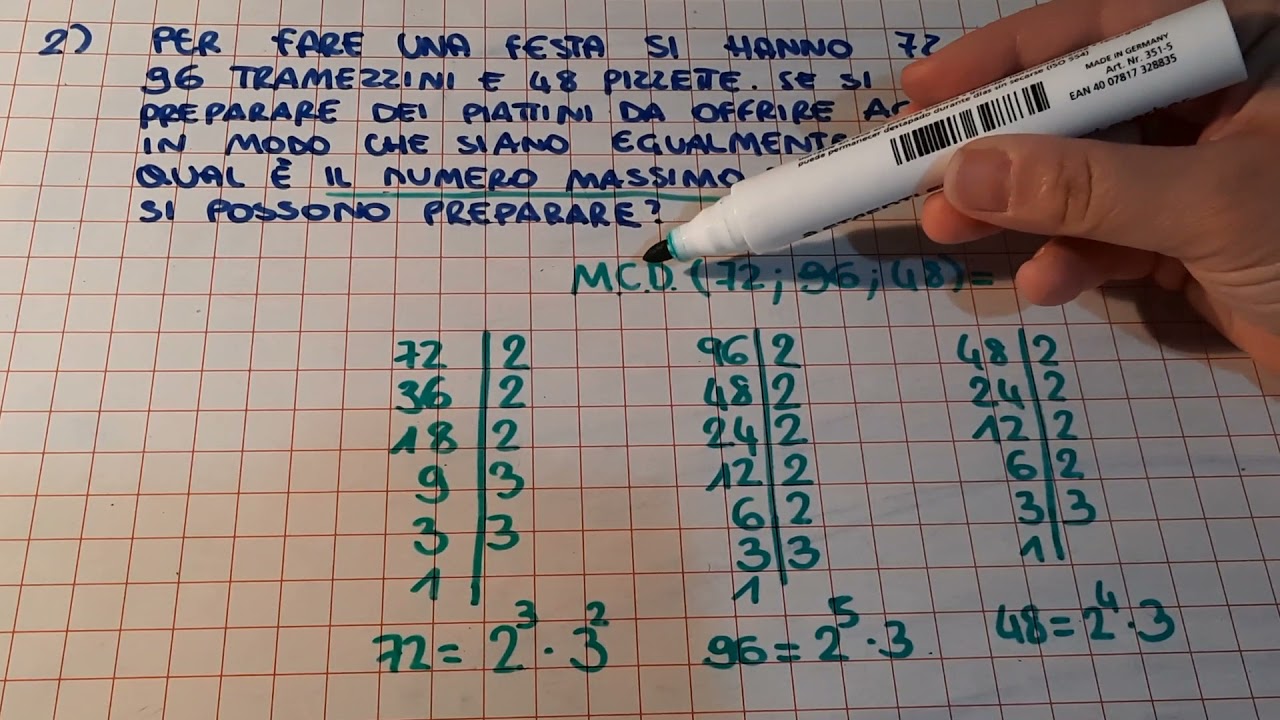 2) PER FARE UNA FESTA SI HANNO 72
96 TRAMEZZINI E 48 PIZZETTE. SE SI
PREPARARE DEI PIATTINI DA OFFRIRE
IN MODO CHE SIANO EGUALMENTE
QUAL È IL NUMERO MASSIMO
SI POSSONO PREPARARE?
MADE IN GERMANY
Art. Nr. 351-5
EAN 40 07817 328835
puede permanecer destapado durante días sin secarse (ISO 554)
M.C.D. (72; 96; 48) =
72 | 2
36 | 2
18 | 2
9 | 3
3 | 3
1 |
72 = 2³ · 3²
96 | 2
48 | 2
24 | 2
12 | 2
6 | 2
3 | 3
1
96 = 2⁵ · 3
48 | 2
24 | 2
12 | 2
6 | 2
3 | 3
1 |
48 = 2⁴ · 3